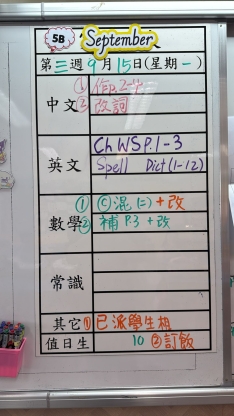 5B September
第三週9月15日(星期一)
中文 ① 作P.2-4
③ 改詞
英文 Ch WS P.1-3
Spell Dict (1-12)
數學 ① ⓒ混(二)+改
② 補 P.3 +改
常識
其它 ① 已派學生相
值日生 10 ② 訂飯